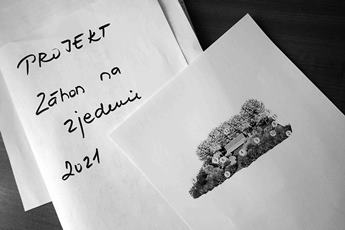 PROJEKT
Záhon na
zjedenie
2021